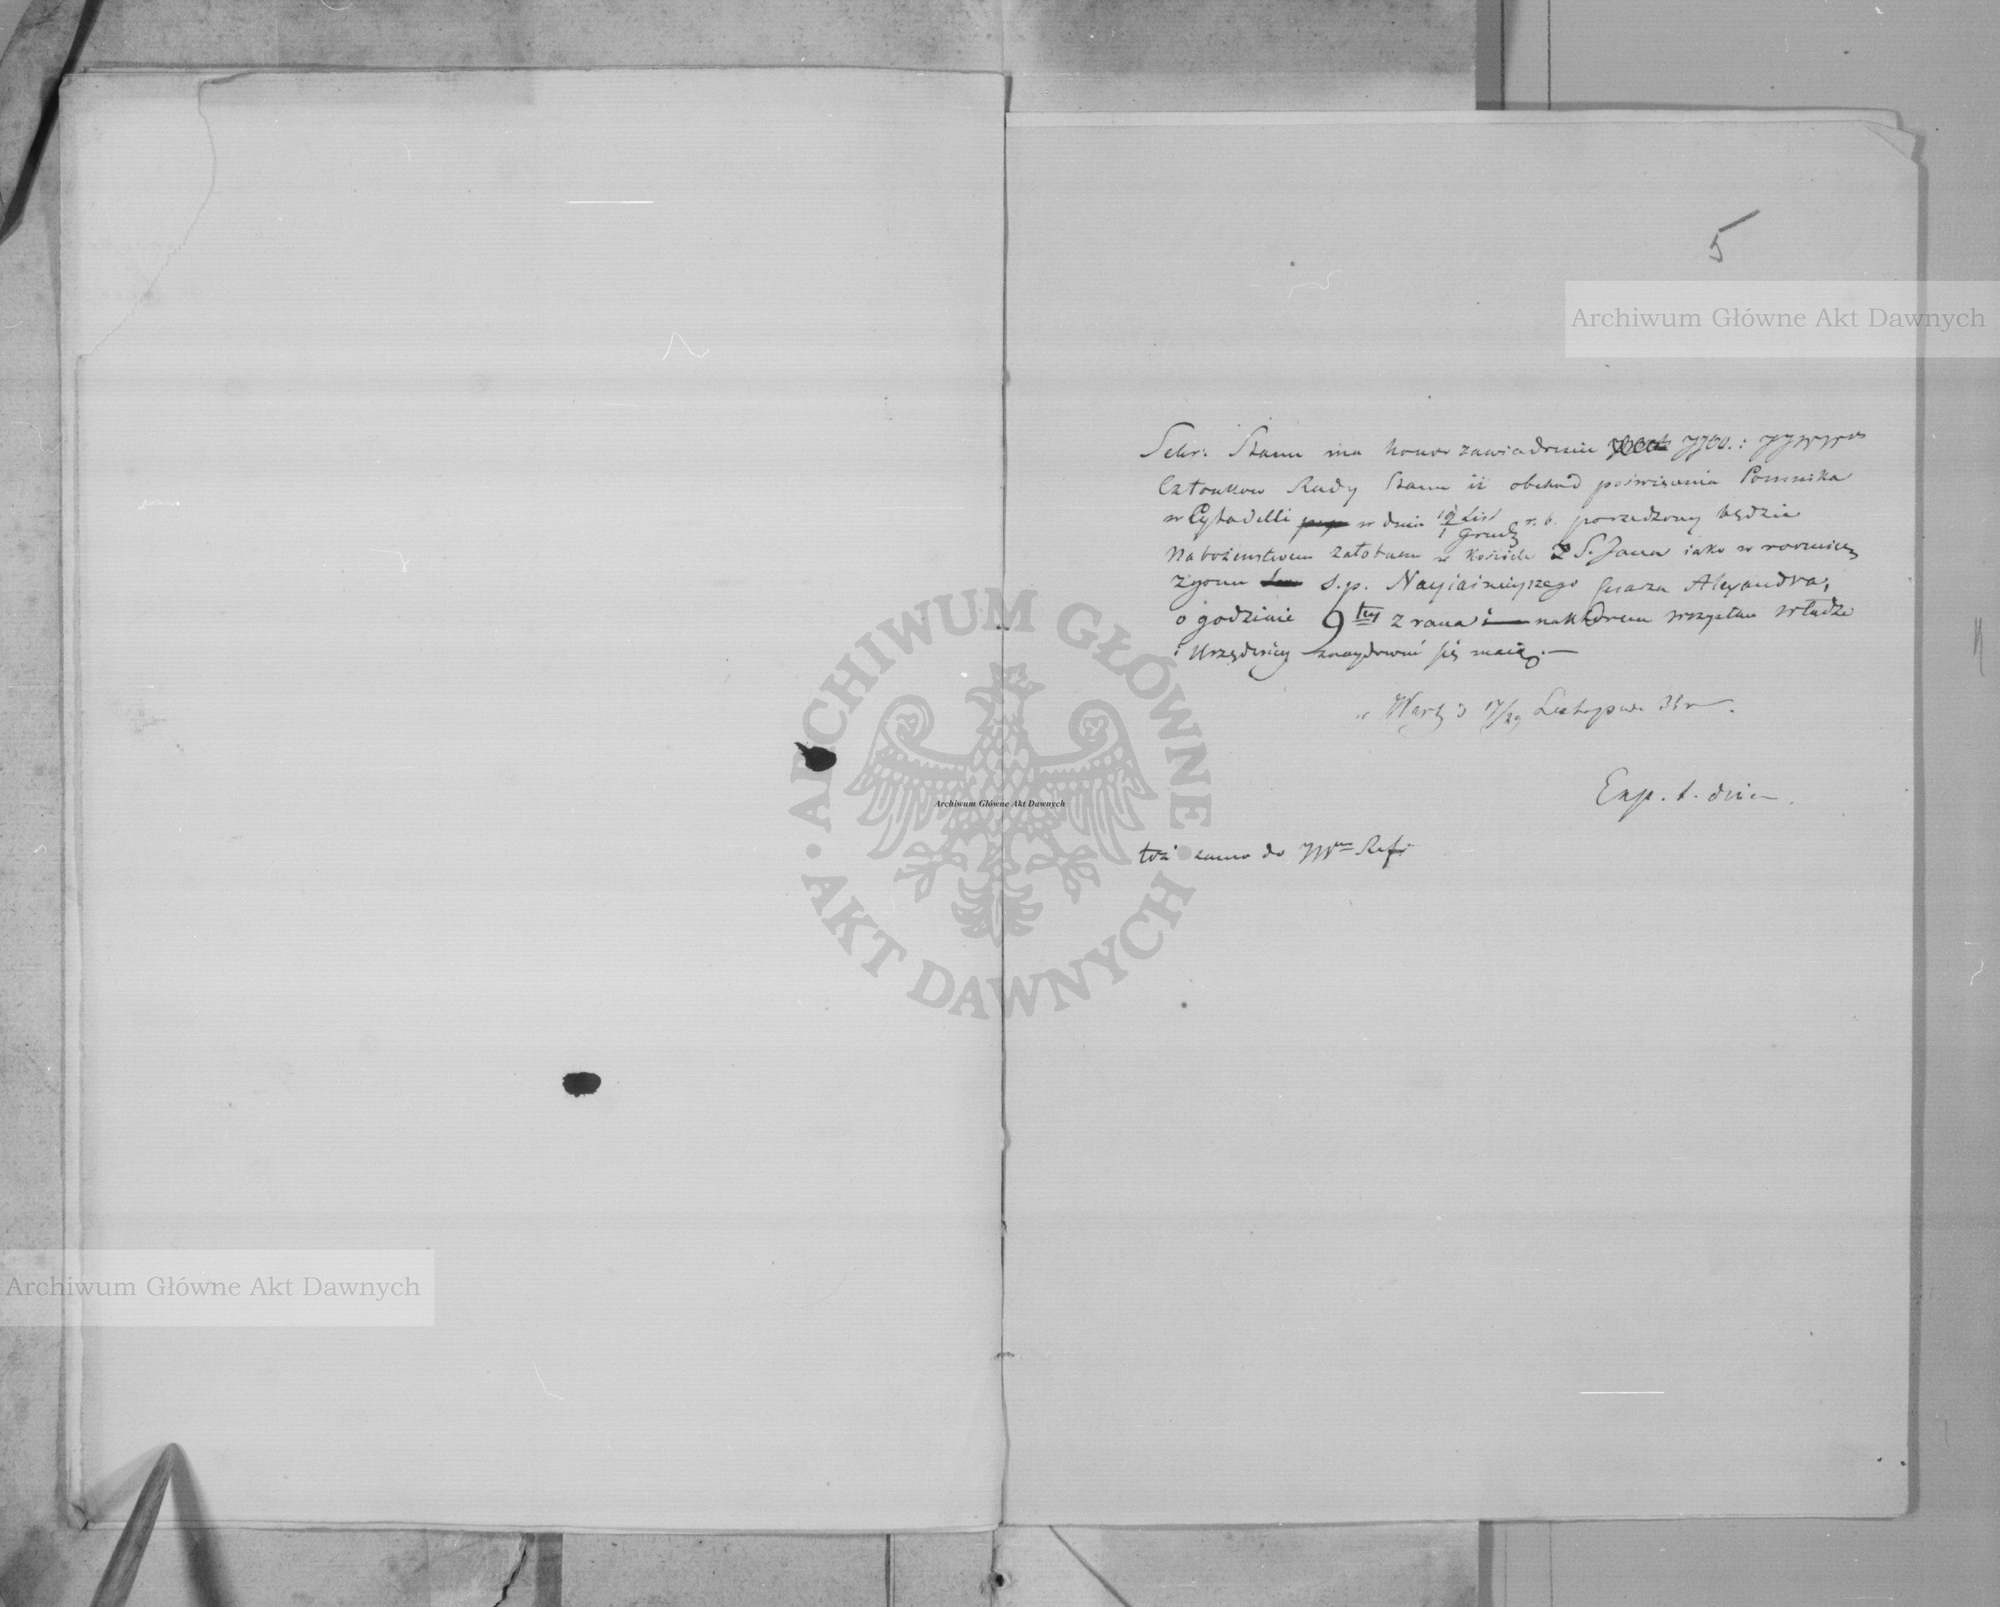 5
Archiwum Główne Akt Dawnych
Sekr: Stanu ma honor zawiadomić JJOO.: JJWWch
Członkow Rady Stanu iż obchód poświęcenia Pomnika
w Cytadelli w dniu 19 List / 1 Grud r. b. poprzedzony będzie
Nabożeństwem żałobnem w kościele S. Jana iako w rocznicę
zgonu S.p. Nayiaśnieyszego Cesarza Alexandra,
o godzinie 9tey z rana na którem wszystkie Władze
i Urzędnicy znaydować się maią.—
w Warsz d 17/29 Listopada 35 r.
Exp. t. dnia
toż samo do JWW Ref:
ARCHIWUM GŁÓWNE AKT DAWNYCH
Archiwum Główne Akt Dawnych
Archiwum Główne Akt Dawnych